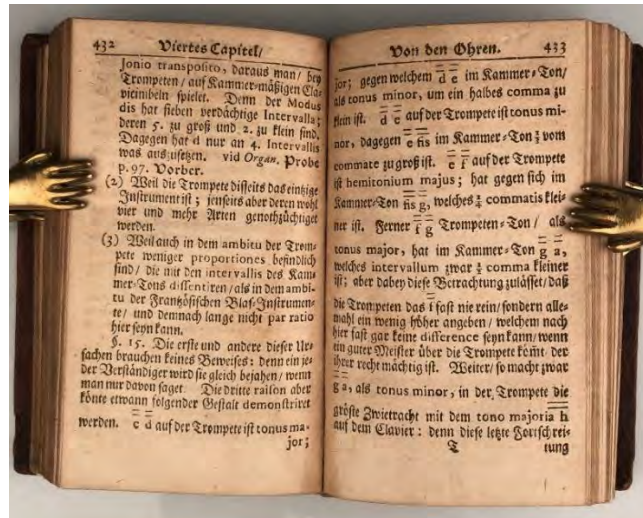 432 Viertes Capitel/
Jonio transposito, daraus man/ bey
Trompeten/ auf Kammer-mäßigen Cla-
vicimbeln spielet. Denn der Modus
dis hat sieben verdächtige Intervalla;
deren 5. zu groß und 2. zu klein sind.
Dagegen hat d nur an 4. Intervallis
was auszusetzen. vid Organ. Probe
p. 97. Vorber.
(2) Weil die Trompete disseits das eintzige
Instrument ist; jenseits aber deren wohl
vier und mehr Arten genothzüchtiget
werden.
(3) Weil auch in dem ambitu der Trom-
pete weniger proportiones befindlich
sind/ die mit den intervallis des Kam-
mer-Tons dissentiren/ als in dem ambi-
tu der Frantzösischen Blas-Instrumen-
te/ und demnach lange nicht par ratio
hier seyn kann.
§. 15. Die erste und andere dieser Ur-
sachen brauchen keines Beweises: denn ein je-
der Verständiger wird sie gleich bejahen/ wenn
man nur davon saget. Die dritte raison aber
könte etwann folgender Gestalt demonstriret
werden. c̿ d̿ auf der Trompete ist tonus ma-
jor;
Von den Ohren. 433
jor; gegen welchem d̿ e̿ im Kammer-Ton/
als tonus minor, um ein halbes comma zu
klein ist. d̿ e̿ auf der Trompete ist tonus mi-
nor, dagegen e̿ fis̿ im Kammer-Ton vom
commate zu groß ist. e̿ f̿ auf der Trompete
ist hemitonium majus; hat gegen sich im
Kammer-Ton fis̿ g̿, welches commatis klei-
ner ist. Ferner f̿ g̿ Trompeten-Ton/ als
tonus major, hat im Kammer-Ton g̿ a̿,
welches intervallum zwar comma kleiner
ist; aber dabey diese Betrachtung zulässet/ daß
die Trompeten das f̿ fast nie rein/ sondern alle-
mahl ein wenig höher angeben/ welchem nach
hier fast gar keine difference seyn kann/ wenn
ein guter Meister über die Trompete kömt, der
ihrer recht mächtig ist. Weiter/ so macht zwar
g̿ a̿, als tonus minor, in der Trompete die
gröste Zwietracht mit dem tono majori a̿ h̿
auf dem Clavier: denn diese letzte Fortschrei-
T tung